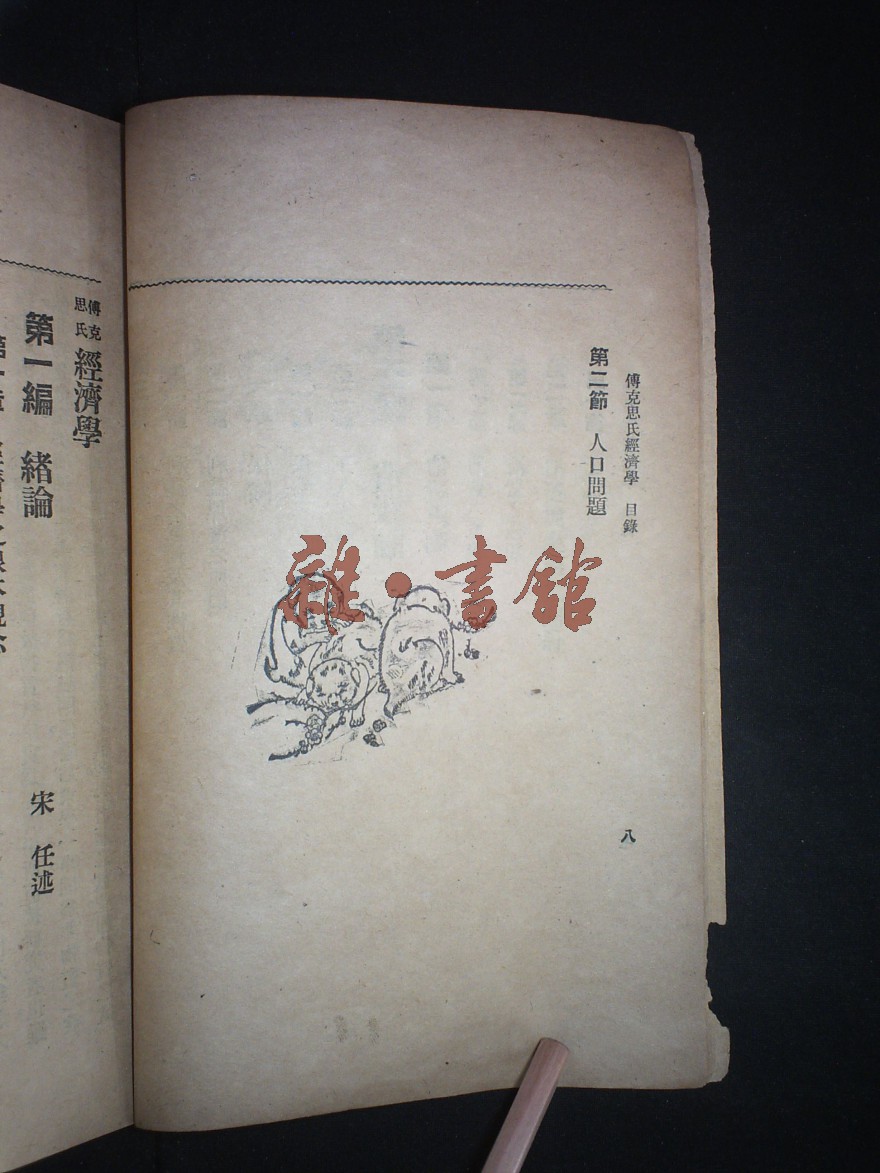 傅克思氏經濟學 目錄
八
第二節 人口問題
雜·書館
傅克思氏 經濟學
第一編 緒論
宋任述